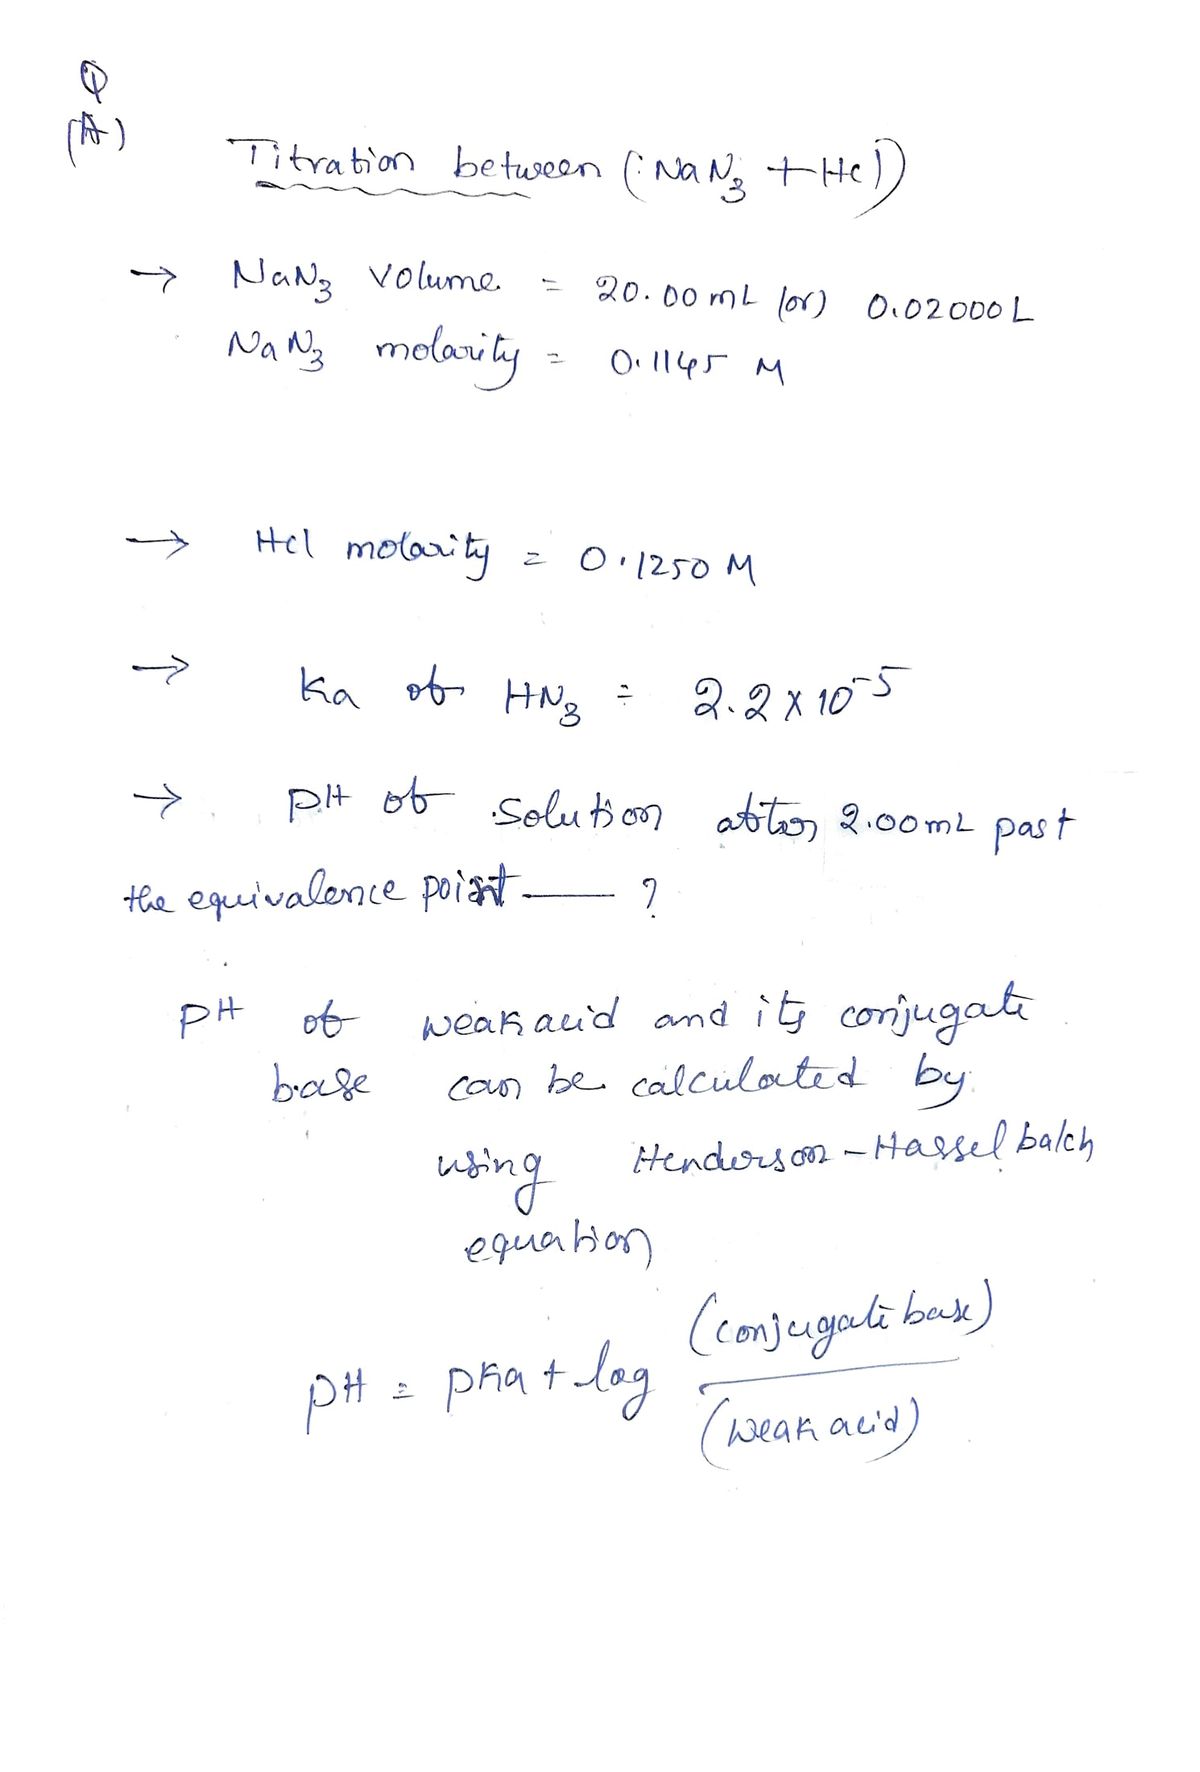 Q
(A)
Titration between (: NaN3 + Hcl)
→ NaN3 volume = 20.00 mL (or) 0.02000 L
NaN3 molarity = 0.1145 M
→ Hcl molarity = 0.1250 M
→ Ka of HN3 = 2.2 x 10^-5
→ pH of solution after 2.00 mL past
the equivalence point —— ?
pH of weak acid and its conjugate
base can be calculated by
using Henderson - Hasselbalch
equation
pH = pKa + log (conjugate base)
(weak acid)